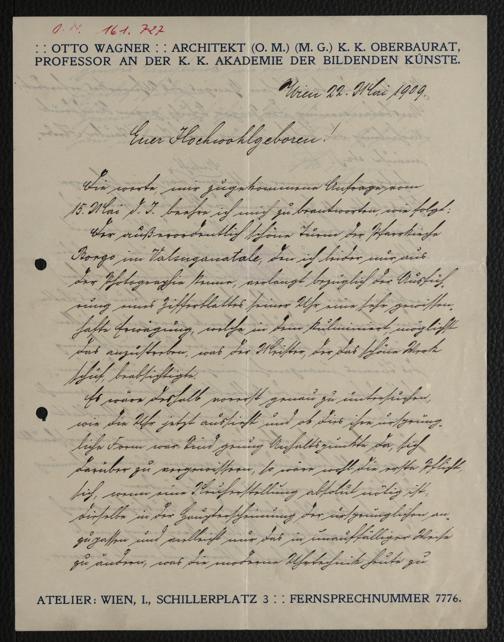 O. N. 161.727
: : OTTO WAGNER : : ARCHITEKT (O. M.) (M. G.) K. K. OBERBAURAT,
PROFESSOR AN DER K. K. AKADEMIE DER BILDENDEN KÜNSTE.
Wien 22. Mai 1909.
Euer Hochwohlgeboren!
Die werte, mir zugekommene Anfrage vom
15. Mai d. J. beehre ich mich zu beantworten wie folgt:
Der außerordentlich schöne Turm der Pfarrkirche
Borgo im Valsuganatale, den ich leider nur aus
der Photographie kenne, verlangt bezüglich der Ausfüh-
rung eines Zifferblattes seiner Uhr eine sehr gewissen-
hafte Erwägung, welche in dem kulminiert, möglichst
das anzustreben, was der Meister, der das schöne Werk
schuf, beabsichtigte.
Es wäre deshalb vorerst genau zu untersuchen,
wie die Uhr jetzt aussieht und ob dies ihre ursprüng-
liche Form war. Sind genug Anhaltspunkte da, sich
darüber zu vergewissern, so wäre wohl die erste Pflicht
sich, wenn eine Neuherstellung absolut nötig ist,
dieselbe in der Haupterscheinung der ursprünglichen an-
zupassen und vielleicht nur das in unauffälliger Weise
zu ändern, was die moderne Uhrtechnik heute zu
ATELIER: WIEN, I., SCHILLERPLATZ 3 : : FERNSPRECHNUMMER 7776.